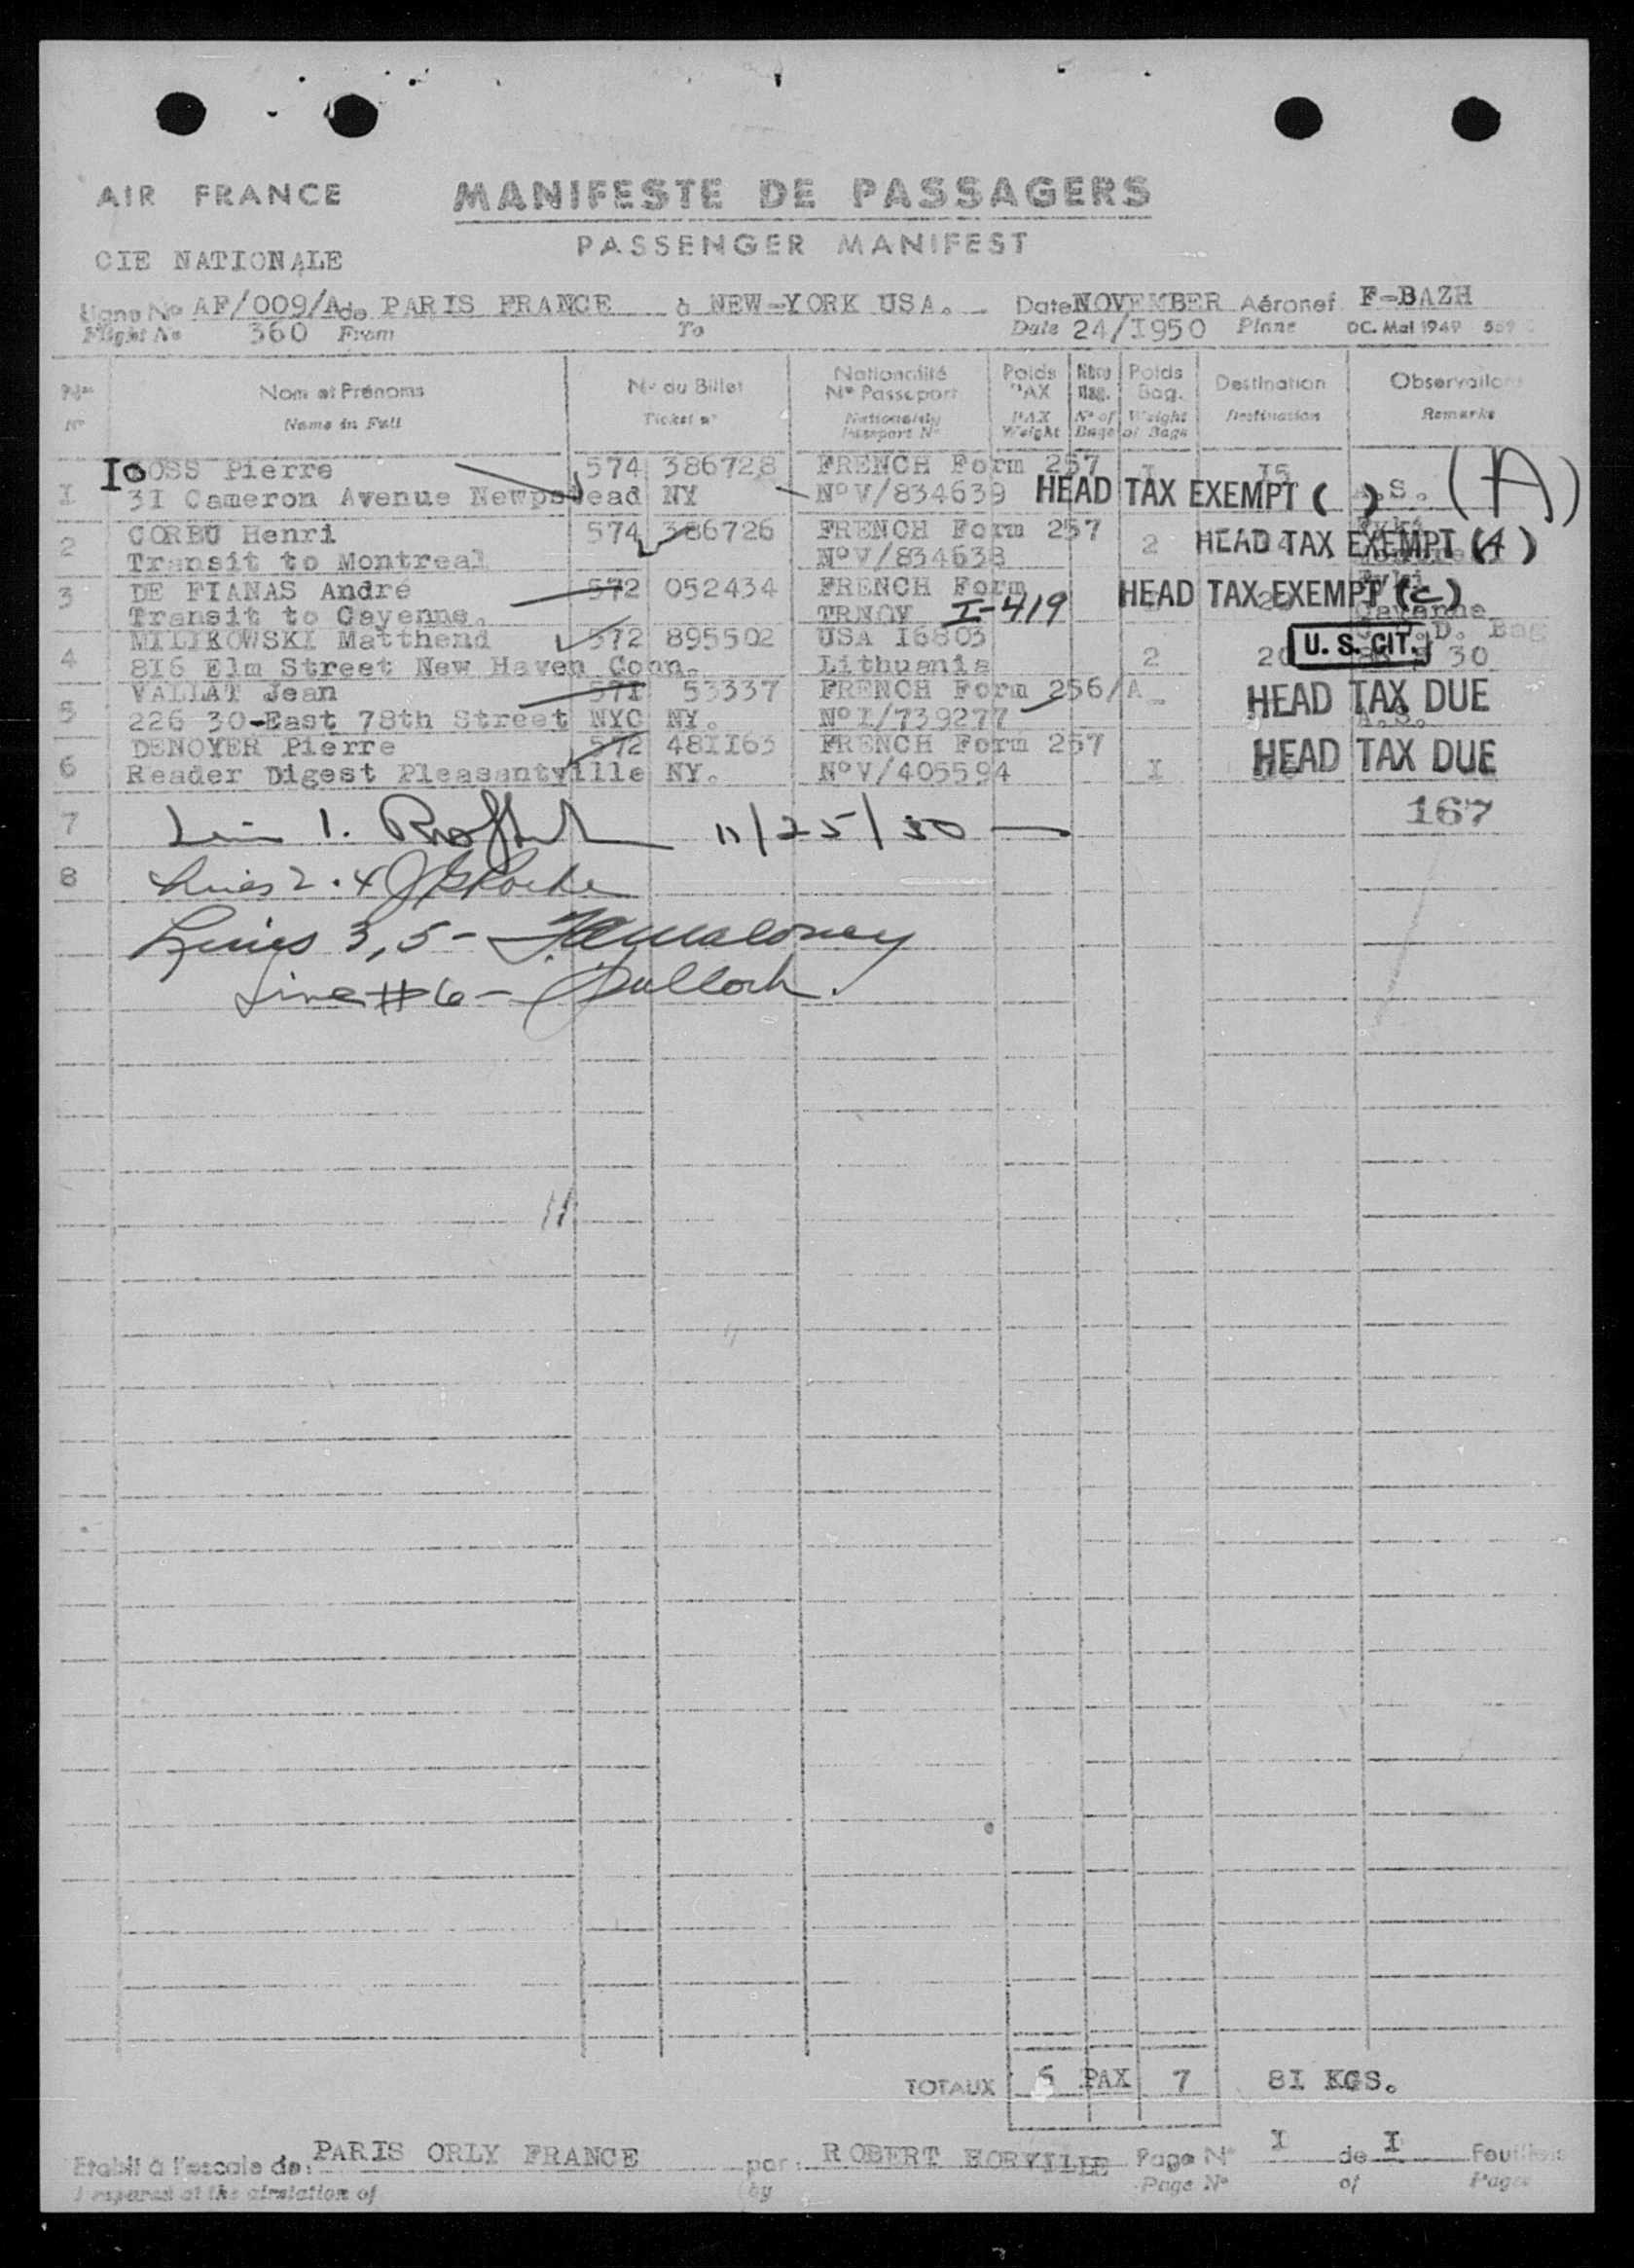 AIR FRANCE
MANIFESTE DE PASSAGERS
PASSENGER MANIFEST
CIE NATIONALE
Ligne No AF/009/A de PARIS FRANCE à NEW-YORK USA. Date NOVEMBER Aéronef F-BAZH
Flight No 360 From To Date 24/I950 Plane OC. Mai 1949
Nos Nom et Prénoms No du Billet Nationalité No Passeport Poids PAX Nbre Bag. Poids Bag. Destination Observations
No Name in Full Ticket no Nationality Passport No PAX Weight No of Bags Weight of Bags Destination Remarks
I IoOSS Pierre 574 386728 FRENCH Form 257 I I5
3I Cameron Avenue Newpstead NY NoV/834639 HEAD TAX EXEMPT ( ) .S. (A)
2 CORBU Henri 574 386726 FRENCH Form 257 2 HEAD TAX EXEMPT (A)
Transit to Montreal NoV/834638
3 DE FIANAS André 572 052434 FRENCH Form HEAD TAX EXEMPT (C)
Transit to Cayenne. TRNOV I-419 Cayenne
4 MILIKOWSKI Matthend 572 895502 USA I6803 2 20 U. S. CIT. D. Bag
8I6 Elm Street New Haven Conn. Lithuania 30
5 VALLAT Jean 571 53337 FRENCH Form 256/A - HEAD TAX DUE
226 30-East 78th Street NYC NY. NoI/739277 A.S.
6 DENOYER Pierre 572 48II63 FRENCH Form 257 I HEAD TAX DUE
Reader Digest Pleasantville NY. NoV/405594
7 Line 1. 11/25/50 167
8 Lines 2.4
Lines 3,5- Maloney
Line #6- Bulloch.
TOTAUX 6 PAX 7 8I KGS.
Etabli à l'escale de: PARIS ORLY FRANCE par: ROBERT HORVILLE Page No I de I Feuillets
Prepared at the airstation of by Page No of Pages